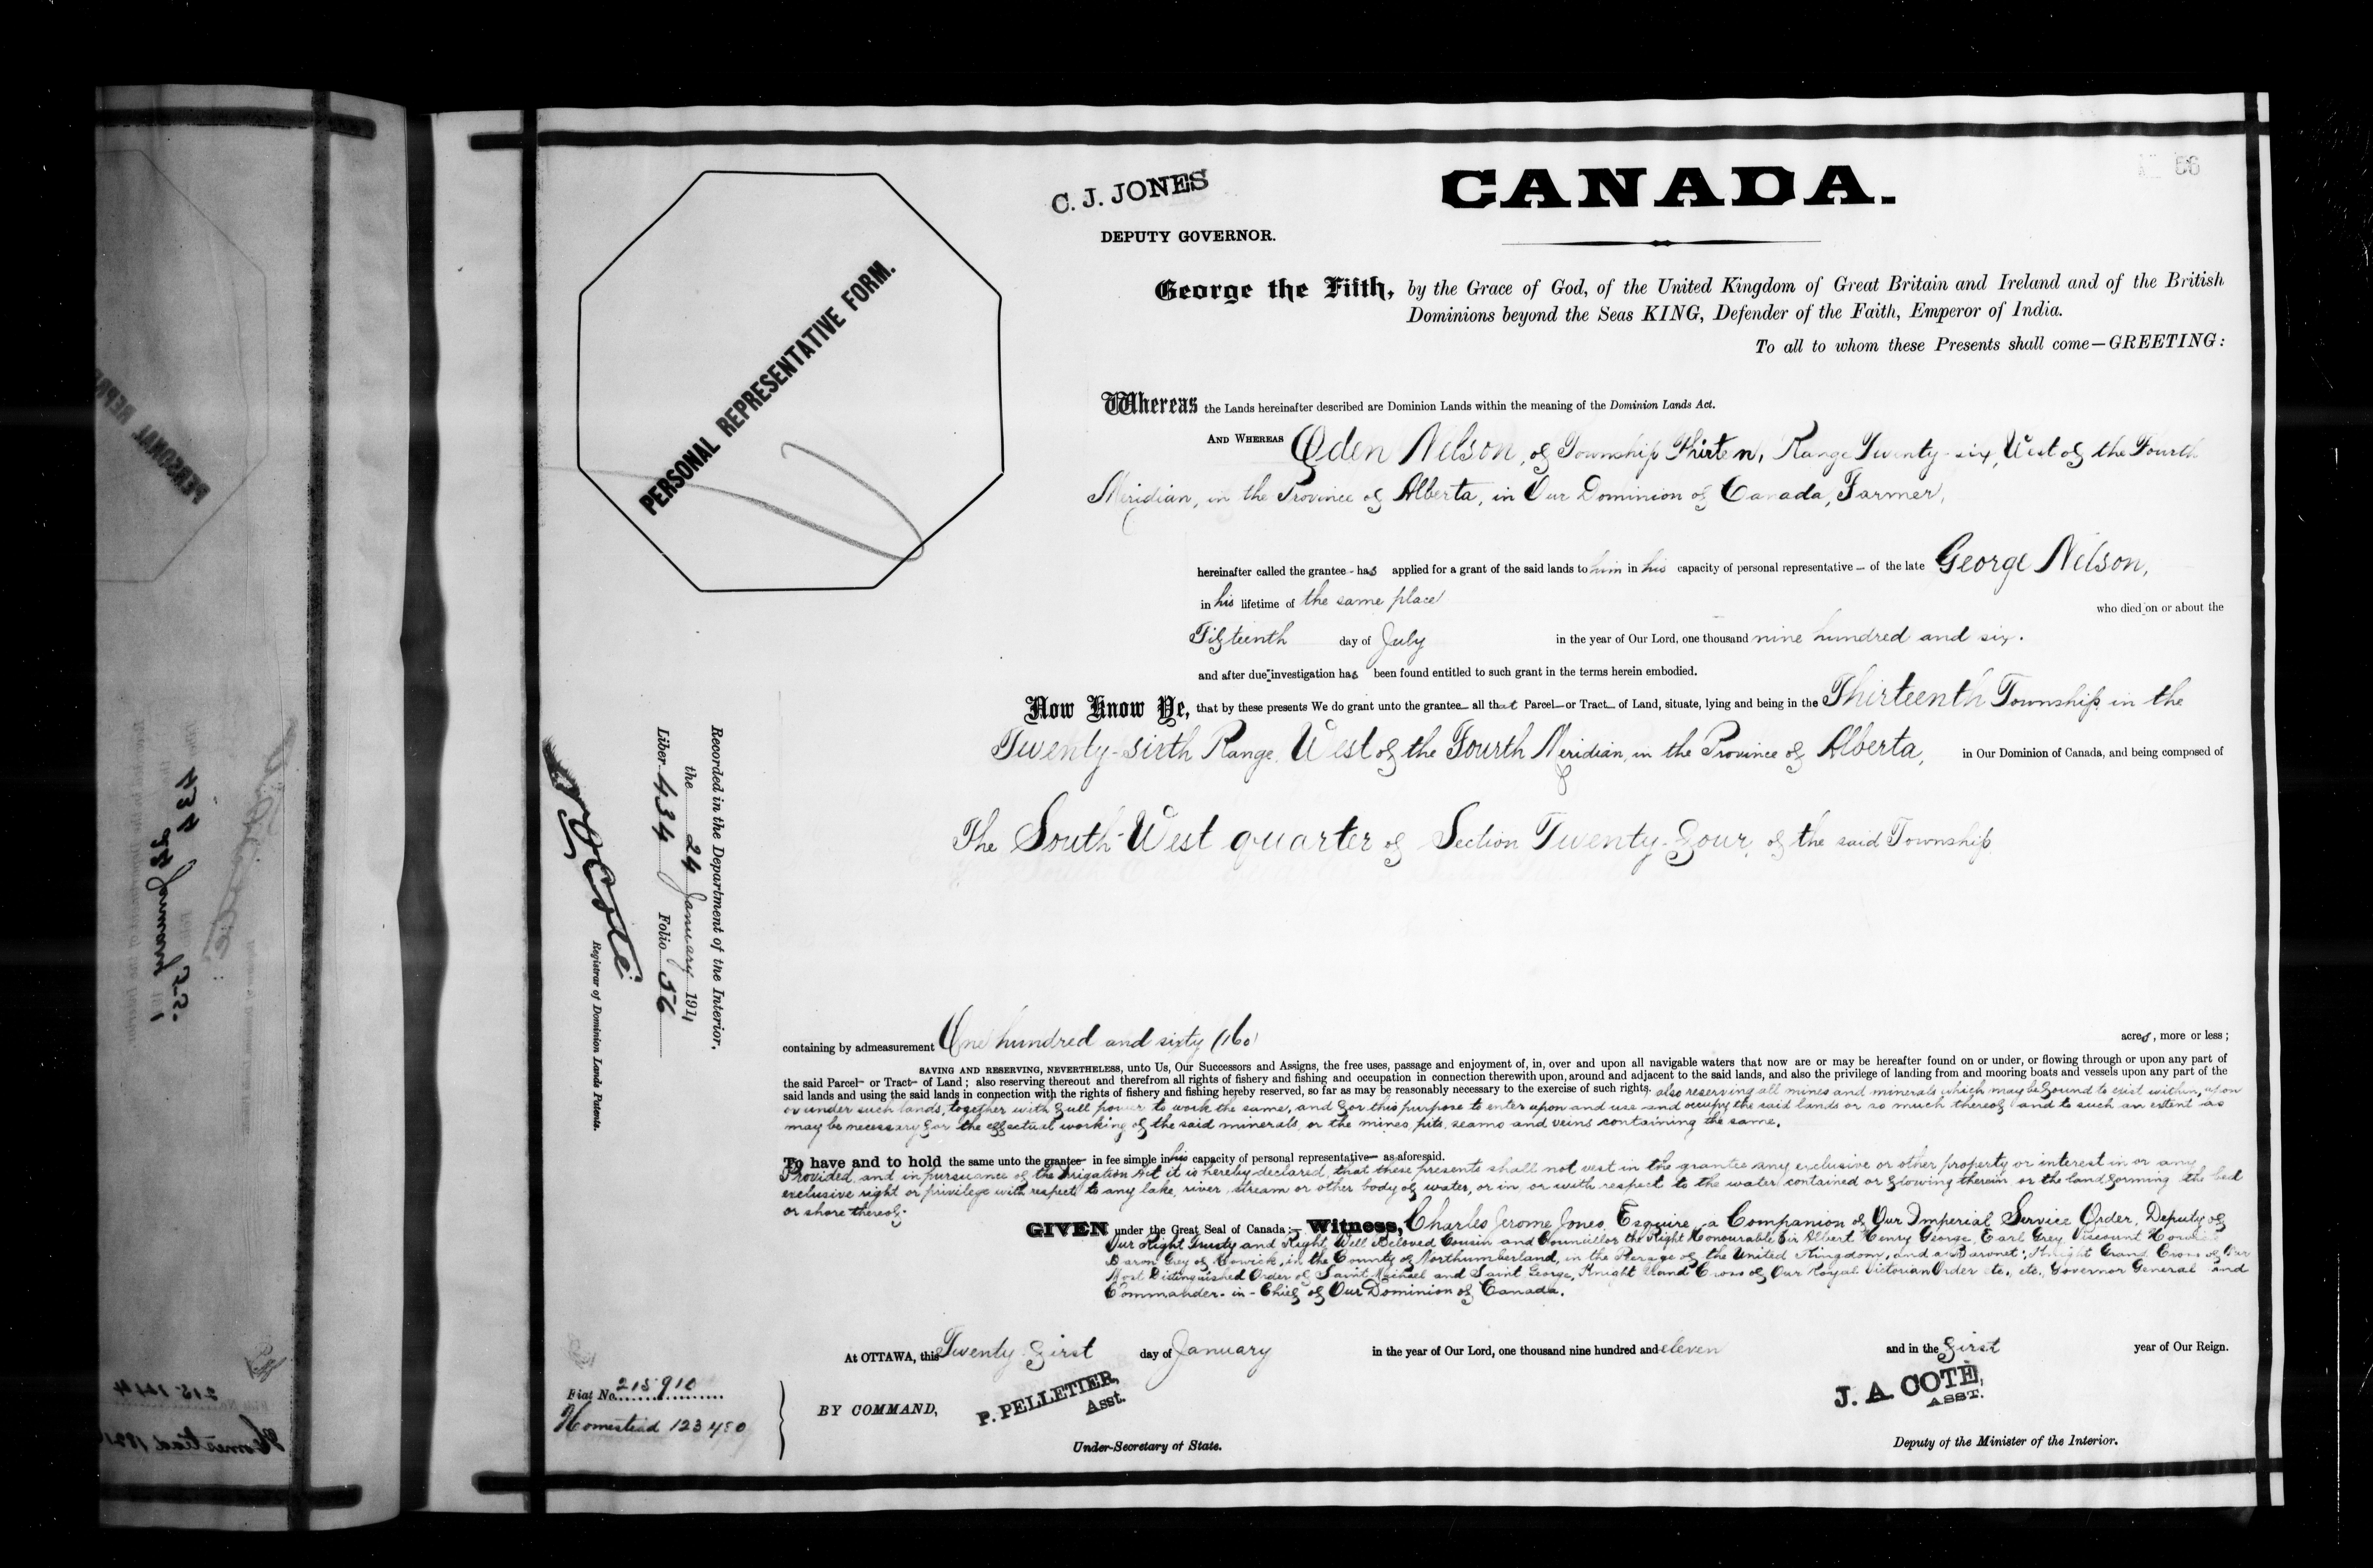 56
C. J. JONES
DEPUTY GOVERNOR.
CANADA.
George the Fifth, by the Grace of God, of the United Kingdom of Great Britain and Ireland and of the British
Dominions beyond the Seas KING, Defender of the Faith, Emperor of India.
To all to whom these Presents shall come—GREETING:
PERSONAL REPRESENTATIVE FORM.
Whereas the Lands hereinafter described are Dominion Lands within the meaning of the Dominion Lands Act.
AND WHEREAS Oden Nelson, of Township Thirteen, Range Twenty-six, West of the Fourth
Meridian, in the Province of Alberta, in Our Dominion of Canada, Farmer,
hereinafter called the grantee - has applied for a grant of the said lands to him in his capacity of personal representative — of the late George Nelson,
in his lifetime of the same place
who died on or about the
Fifteenth day of July in the year of Our Lord, one thousand nine hundred and six.
and after due investigation has been found entitled to such grant in the terms herein embodied.
Now Know Ye, that by these presents We do grant unto the grantee— all that Parcel—or Tract— of Land, situate, lying and being in the Thirteenth Township in the
Twenty-sixth Range, West of the Fourth Meridian, in the Province of Alberta, in Our Dominion of Canada, and being composed of
The South-West quarter of Section Twenty-four, of the said Township
containing by admeasurement One hundred and sixty (160) acres, more or less;
SAVING AND RESERVING, NEVERTHELESS, unto Us, Our Successors and Assigns, the free uses, passage and enjoyment of, in, over and upon all navigable waters that now are or may be hereafter found on or under, or flowing through or upon any part of
the said Parcel— or Tract— of Land; also reserving thereout and therefrom all rights of fishery and fishing and occupation in connection therewith upon, around and adjacent to the said lands, and also the privilege of landing from and mooring boats and vessels upon any part of the
said lands and using the said lands in connection with the rights of fishery and fishing hereby reserved, so far as may be reasonably necessary to the exercise of such rights, also reserving all mines and minerals which may be found to exist within, upon
or under such lands, together with full power to work the same, and for this purpose to enter upon and use and occupy the said lands or so much thereof and to such an extent as
may be necessary for the effectual working of the said minerals, or the mines, pits, seams and veins containing the same.
To have and to hold the same unto the grantee— in fee simple in his capacity of personal representative— as aforesaid.
Provided, and in pursuance of the Irrigation Act it is hereby declared, that these presents shall not vest in the grantee any exclusive or other property or interest in or any
exclusive right or privilege with respect to any lake, river, stream or other body of water, or in, or with respect to the water contained or flowing therein or the land forming the bed
or shore thereof.
GIVEN under the Great Seal of Canada:— Witness, Charles Jerome Jones, Esquire, a Companion of Our Imperial Service Order, Deputy of
Our Right Trusty and Right Well Beloved Cousin and Councillor the Right Honourable Sir Albert Henry George, Earl Grey, Viscount Howick
Baron Grey of Howick, in the County of Northumberland, in the Peerage of the United Kingdom, and a Baronet; Knight Grand Cross of Our
Most Distinguished Order of Saint Michael and Saint George, Knight Grand Cross of Our Royal Victorian Order etc., etc., Governor General and
Commander-in-Chief of Our Dominion of Canada.
At OTTAWA, this Twenty first day of January in the year of Our Lord, one thousand nine hundred and eleven and in the first year of Our Reign.
BY COMMAND,
P. PELLETIER,
Asst.
Under-Secretary of State.
J. A. COTÉ,
ASST.
Deputy of the Minister of the Interior.
Fiat No. 215910
Homestead 123450
Recorded in the Department of the Interior,
the 24 January 1911
Liber 434 Folio 56
Registrar of Dominion Lands Patents.